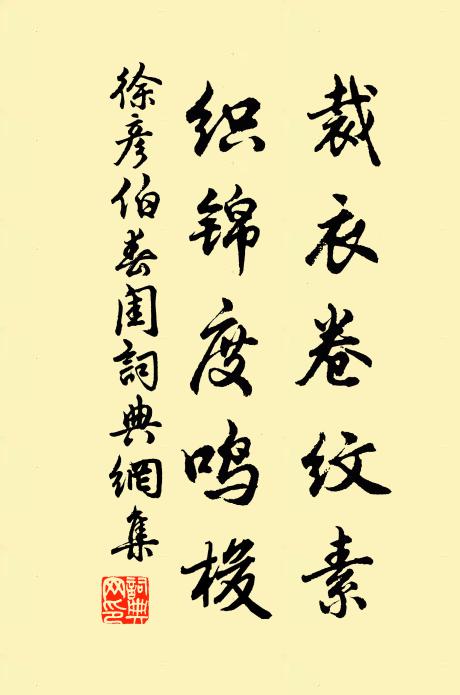 裁衣卷纹素
织锦度鸣梭
徐彦伯春闺詞典網集
詞典网印